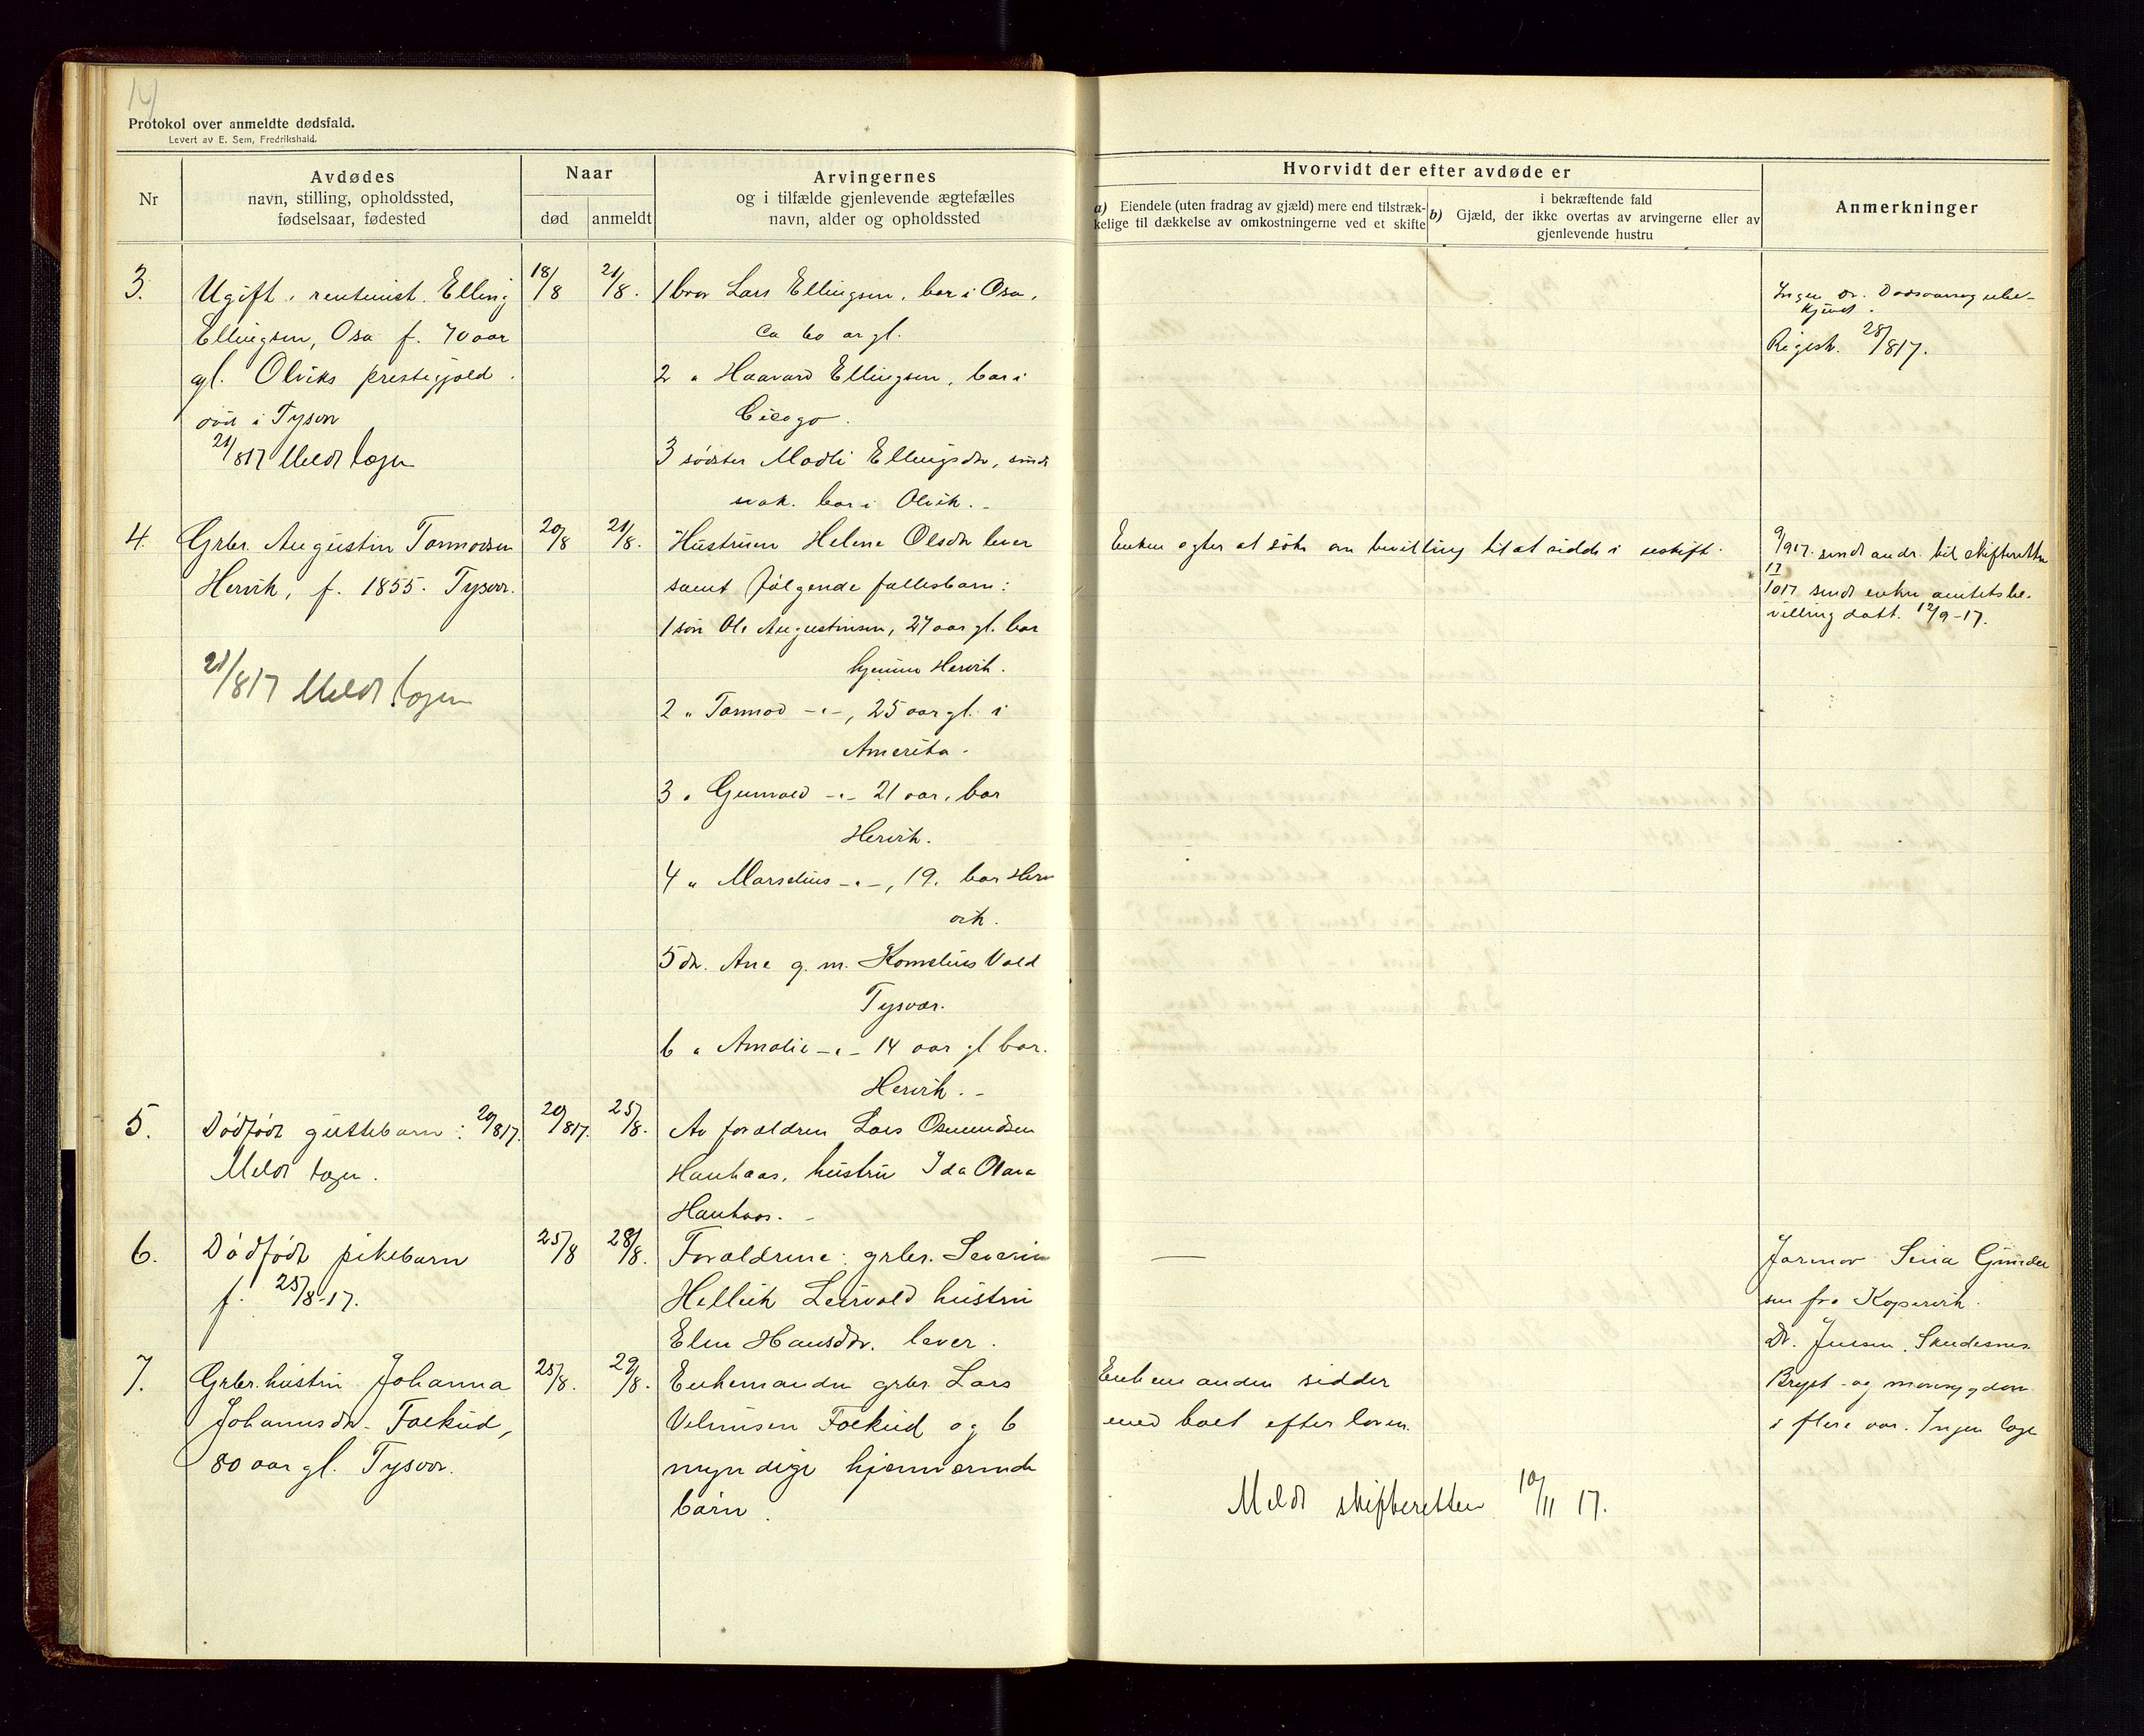 14
Protokol over anmeldte dødsfald.
Levert av E. Sem, Fredrikshald.
Nr
Avdødes
navn, stilling, opholdssted,
fødselsaar, fødested
Naar
død
anmeldt
Arvingernes
og i tilfælde gjenlevende ægtefælles
navn, alder og opholdssted
Hvorvidt der efter avdøde er
a) Eiendele (uten fradrag av gjæld) mere end tilstræk-
kelige til dækkelse av omkostningerne ved et skifte
i bekræftende fald
b) Gjæld, der ikke overtas av arvingerne eller av
gjenlevende hustru
Anmerkninger
3.
Ugift, rentenist. Elling
Ellingsen, Osa f. 70 aar
gl. Olviks prestegjeld.
død i Tysvær
21/817 Meldt lægen
18/8
21/8.
1 bror Lars Ellingsen, bor i Osa,
ca 60 år gl.
2 " Haavard Ellingsen, bor i
3 søster Madli Ellingsdr, sinds
svak. bor i Olvik. -
Ingen Dr. Dødsaarsag ube-
kjendt.
Regist. 28/817.
4.
Grbr. Augustin Tormodsen
Hervik, f. 1855. Tysvær.
21/817 Meldt lægen
20/8
21/8.
Hustruen Helene Olsdr lever
samt følgende fællesbarn:
1 søn Ole Augustinsen, 27 aar gl. bor
hjemme Hervik.
2 " Tormod -"-, 25 aar gl. i
Amerika.
3 " Gunvald -"- 21 aar, bor
Hervik.
4 " Marselius -"-, 19. bor Her
vik.
5 dr. Ane g. m. Kornelius Vold
Tysvær.
6 " Amalie -"- 14 aar gl bor.
Hervik. -
Enken agter at søke om bevilling til at sidde i uskift.
9/917. sendt andr. til skifteretten
17/1017 sendt enken amtets be-
villing datt. 12/9-17.
5.
Dødfødt guttebarn: 20/817.
Meldt lægen.
20/817.
25/8.
Av forældren Lars Osmundsen
Hauhaas, hustru Ida Olava
Hauhaas. -
6.
Dødfødt pikebarn
f. 25/8-17.
25/8
28/8.
Forældrene: grbr. Severin
Hellvik Leirvold hustru
Elen Hansdtr. lever.
—
Jormor Sina Gunder
sen fra Kopervik.
Dr. Jensen, Skudesnes.
7.
Grbr. hustru Johanna
Johannsdr. Folkud,
80 aar gl. Tysvær.
25/8.
29/8.
Enkemanden grbr. Lars
Folkud og 6
myndige hjemværende
børn.
Enkemanden sidder
med boet efter loven.
Meldt skifteretten 10/11 17.
Bryst- og mavesygdom
i flere aar. Ingen læge